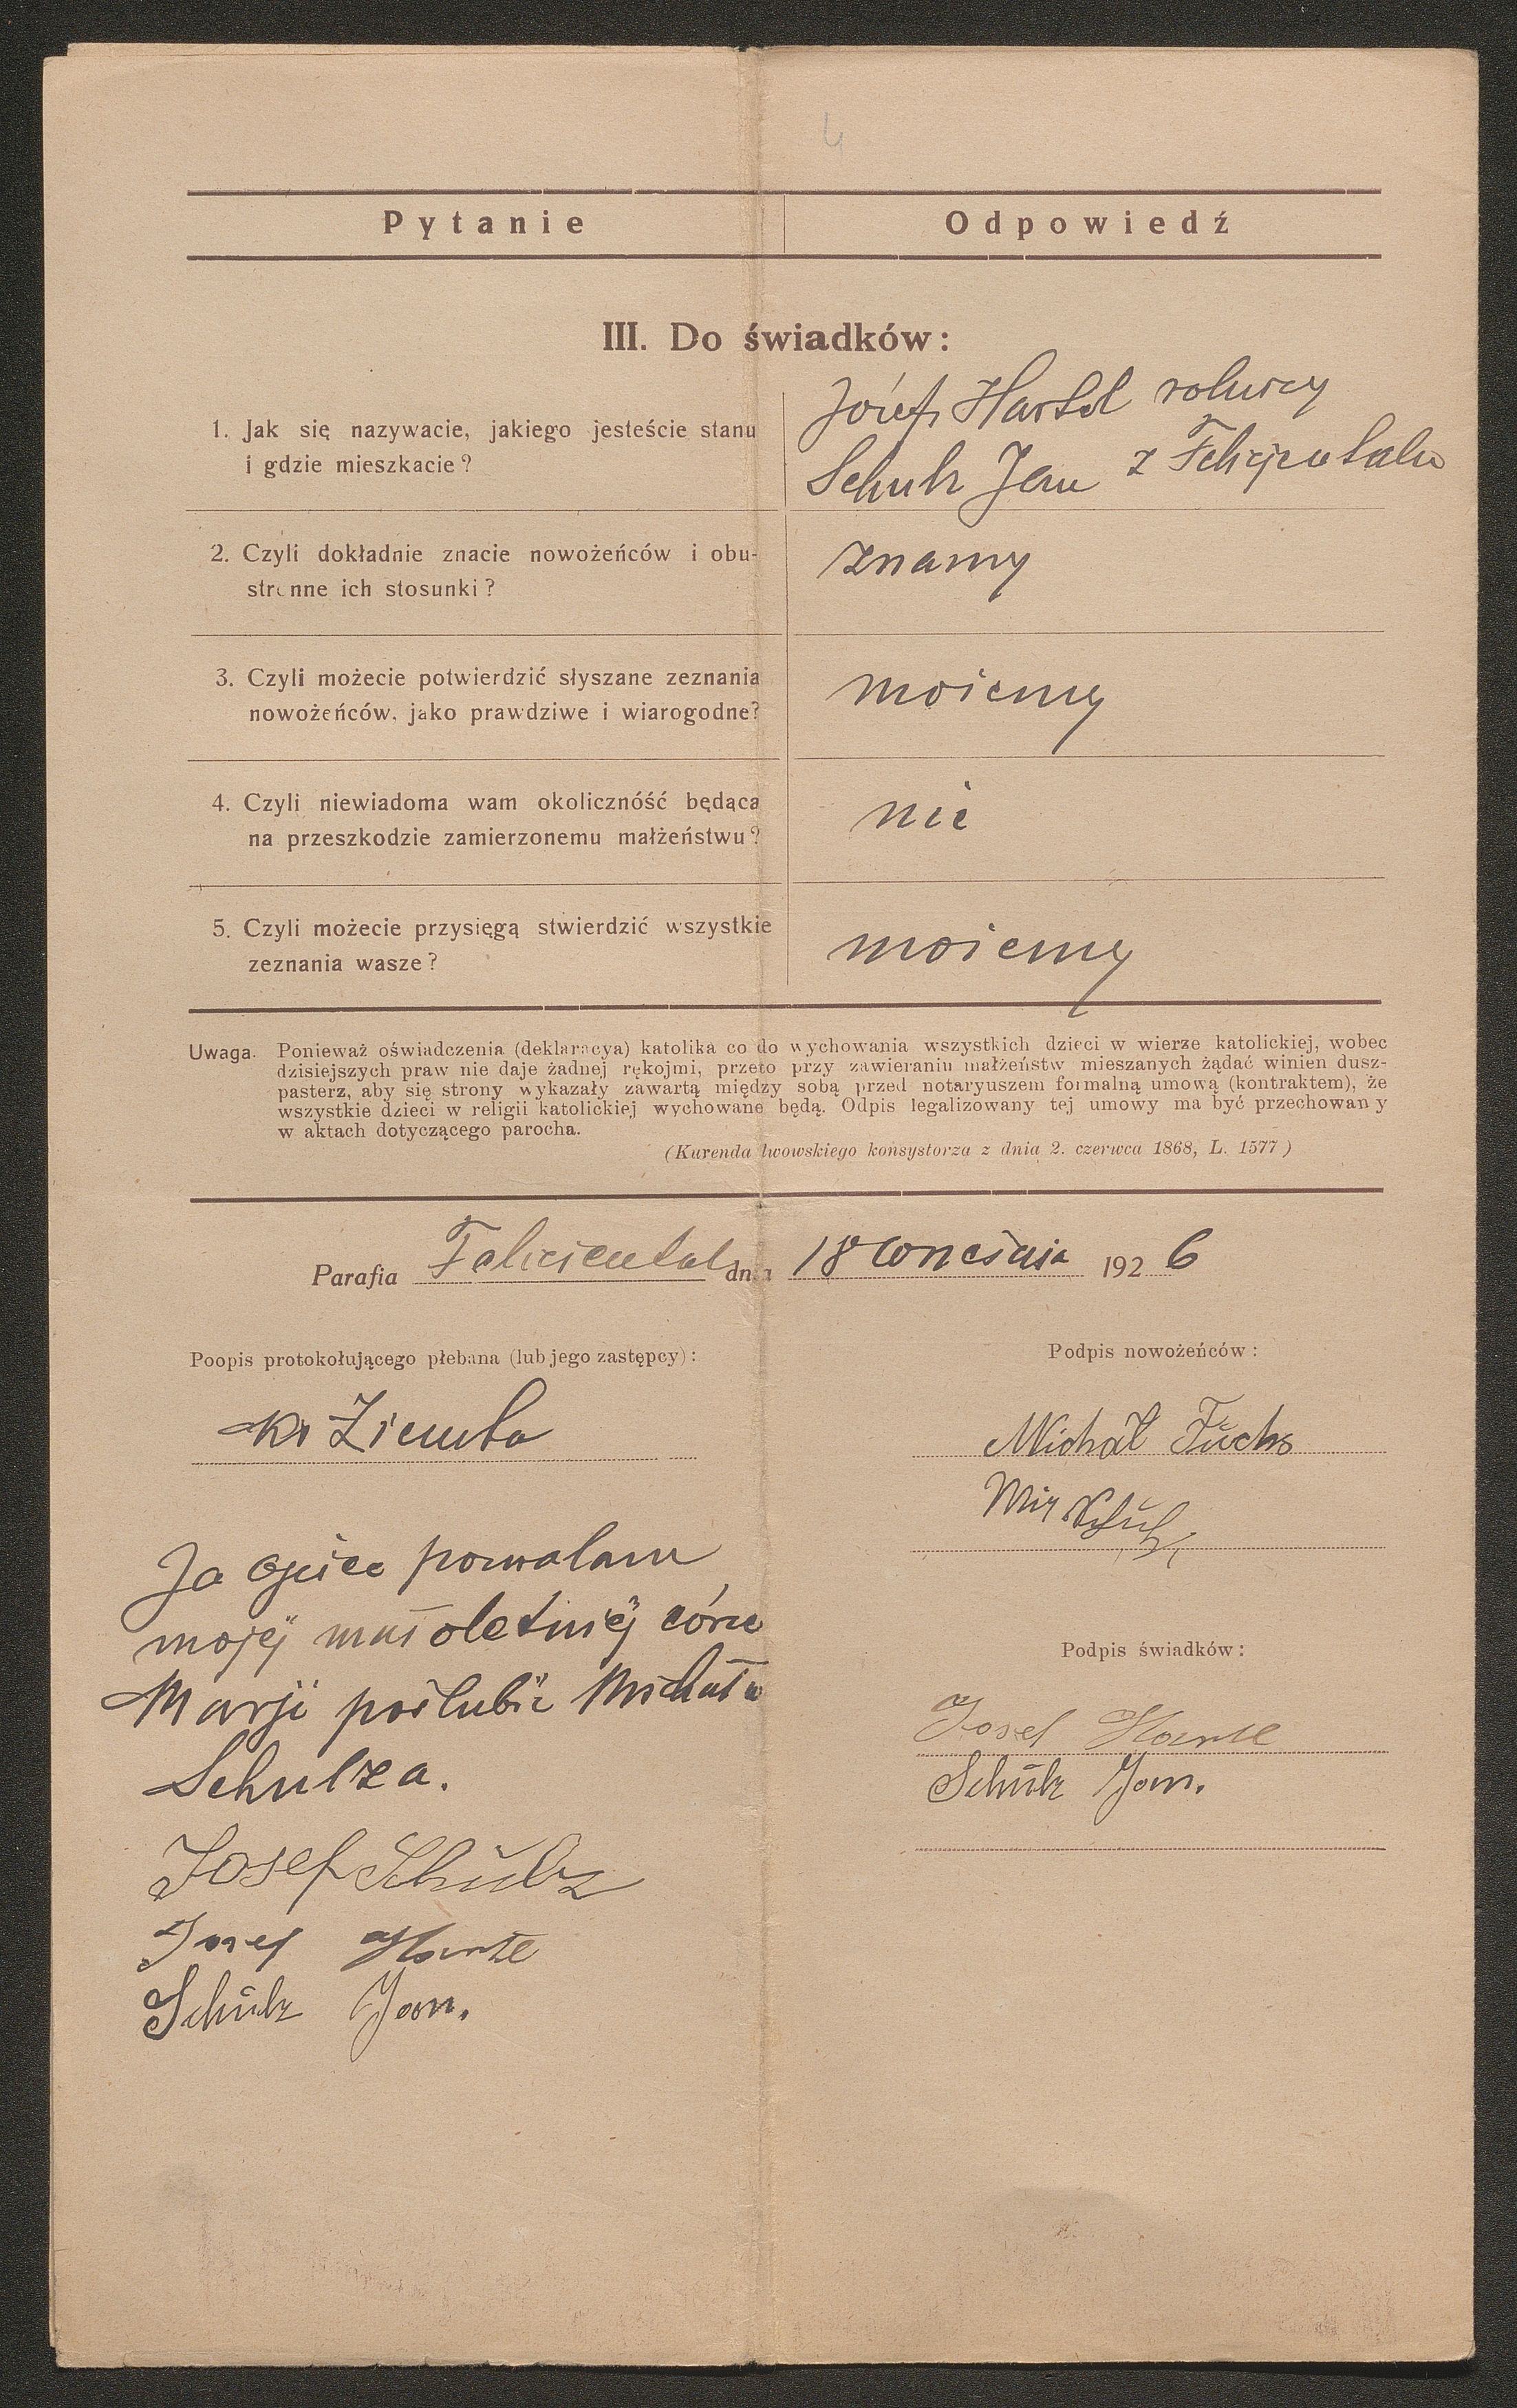 4
Pytanie Odpowiedź
III. Do świadków:
1. Jak się nazywacie, jakiego jesteście stanu
i gdzie mieszkacie?
Józef Hartel rolnicy
Schulz Jan z Felicjentalu
2. Czyli dokładnie znacie nowożeńców i obu-
stronne ich stosunki?
znamy
3. Czyli możecie potwierdzić słyszane zeznania
nowożeńców, jako prawdziwe i wiarogodne?
możemy
4. Czyli niewiadoma wam okolicznóść będąca
na przeszkodzie zamierzonemu małżeństwu?
nie
5. Czyli możecie przysięgą stwierdzić wszystkie
zeznania wasze?
możemy
Uwaga. Ponieważ oświadczenia (deklaracya) katolika co do wychowania wszystkich dzieci w wierze katolickiej, wobec
dzisiejszych praw nie daje żadnej rękojmi, przeto przy zawieraniu małżeństw mieszanych żądać winien dusz-
pasterz, aby się strony wykazały zawartą między sobą przed notaryuszem formalną umową (kontraktem), że
wszystkie dzieci w religii katolickiej wychowane będą. Odpis legalizowany tej umowy ma być przechowany
w aktach dotyczącego parocha.
(Kurenda lwowskiego konsystorza z dnia 2. czerwca 1868, L. 1577)
Parafia Feliciental dnia 18 września 1926
Poopis protokołującego plebana (lub jego zastępcy):
Podpis nowożeńców:
Ks Ziemba
Michał Fuchs
Ja ojciec pozwalam
mojej małoletniej córce
Marji poślubić Michała
Schulza.
Josef Schulz
Josef Hartl
Schulz Jan.
Podpis świadków:
Josef Hartl
Schulz Jan.